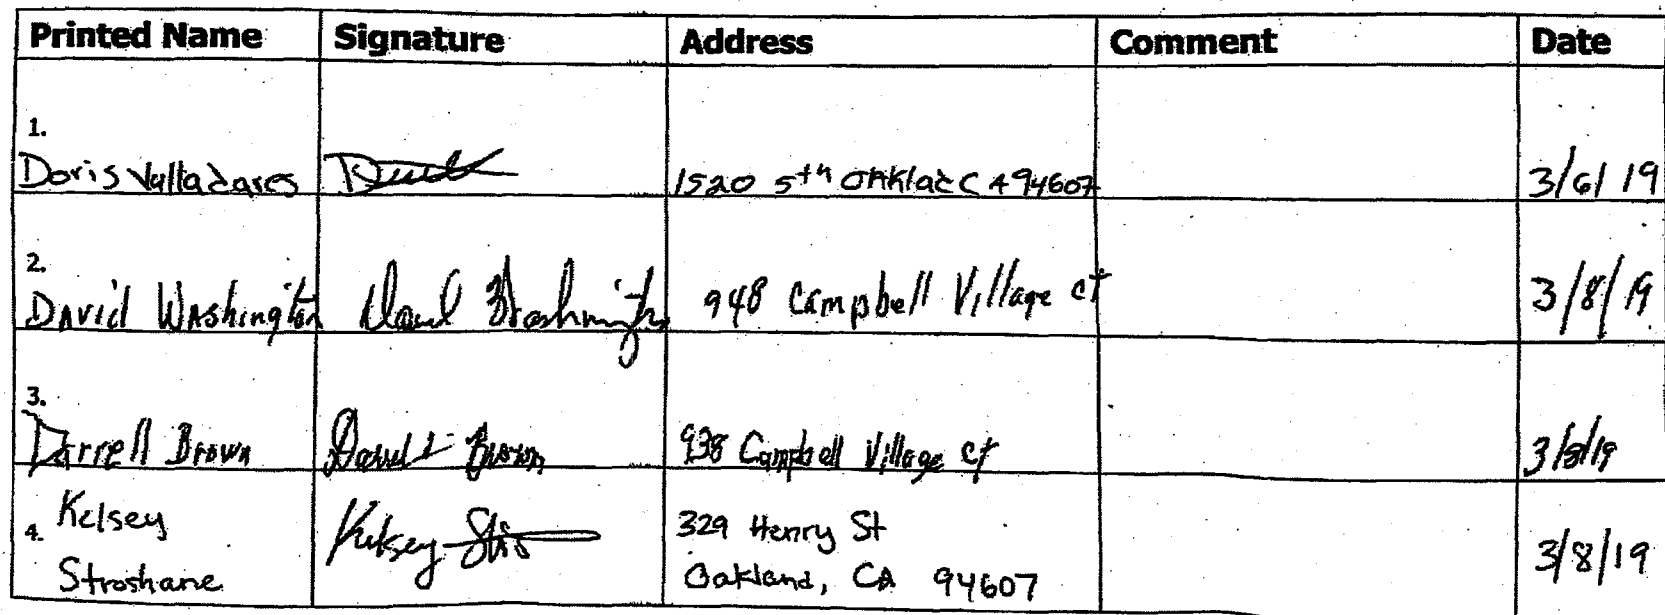 Printed Name Signature Address Comment Date
1.
Doris Valladares 1520 5th OAKlad CA 94607 3/6/19
2.
David Washington David Washington 948 Campbell Village ct 3/8/19
3.
Darrell Brown Darrell Brown 938 Campbell Village ct 3/8/19
Kelsey 329 Henry St
4. Kelsey 3/8/19
Stroshane Oakland, CA 94607